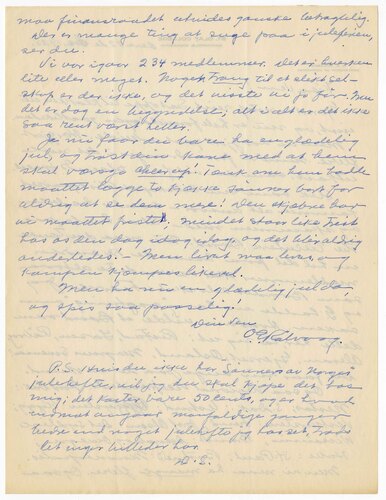 maa finansraadet utvides ganske betragtelig.
Der er mange ting at suge paa i juleferien,
ser du.
Vi var igaar 234 medlemmer. Det er hverken
lite eller meget. Nogen trang til et slikt sel-
skap er der ikke, og det visste vi jo før. Men
det er dog en begyndelse; alt i alt er det ikke
saa rent værst heller.
Ja nu faar du bare ha en gladelig
jul, og trøst din kone med at hun
skal værsgo cheer up! Tænk om hun hadde
maattet lægge to kjække sønner bort for
aldrig at se dem mer! Den skjæbne har
vi maattet friste, mindet staar like friskt
hos os den dag idag, og det blir aldrig
anderledes! — Men livet maa leves, og
kampen kjæmpes likevel.
Men ha nu en gladelig jul da,
og spis saa passelig!
Din ven
O E Rølvaag.
P.S. Hvis du ikke har Sønner av Norges
julehefte, vil jeg du skal kjøpe det hos
mig; det koster bare 50 cents, og er
mangfoldige ganger
bedre end noget julehefte jeg har set, trods
at ingen billeder har.
D. S.